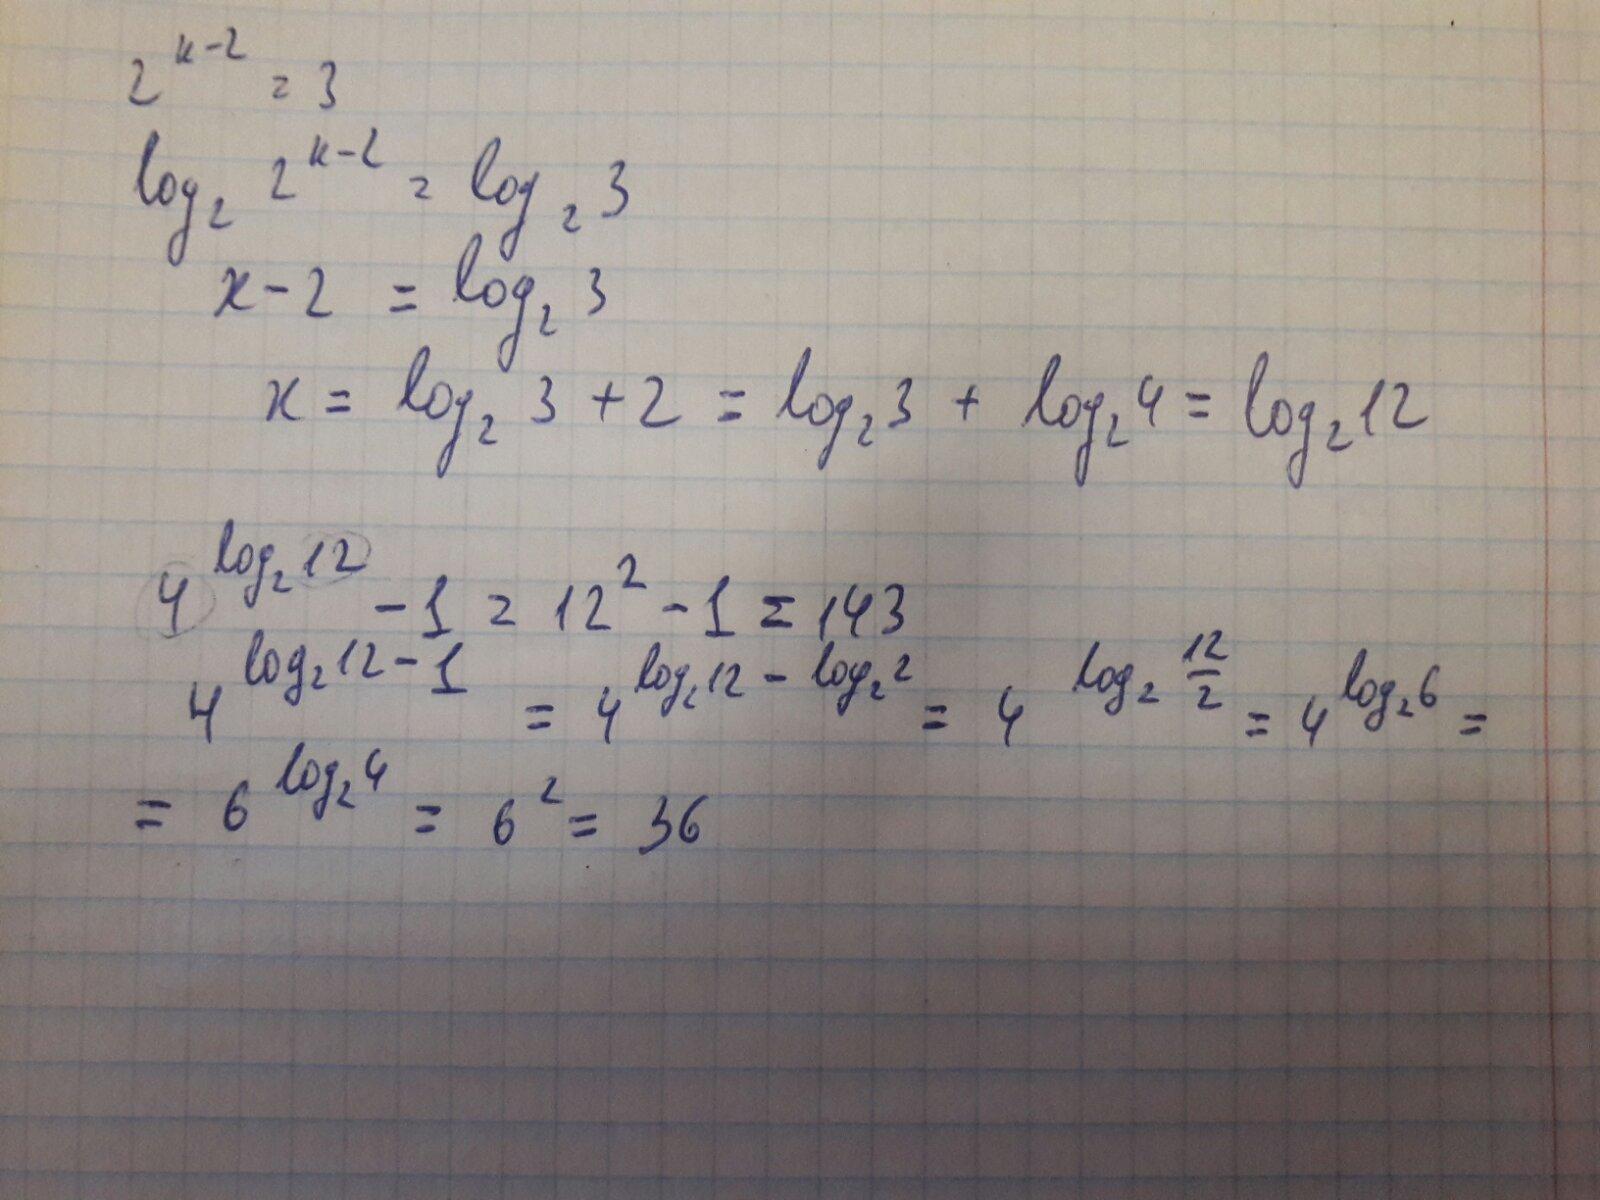 2^{x-2} = 3
log₂ 2^{x-2} = log₂ 3
x - 2 = log₂ 3
x = log₂ 3 + 2 = log₂ 3 + log₂ 4 = log₂ 12
4^{log₂ 12} - 1 = 12² - 1 = 143
4^{log₂ 12 - 1} = 4^{log₂ 12 - log₂ 2} = 4^{log₂ \frac{12}{2}} = 4^{log₂ 6} =
= 6^{log₂ 4} = 6² = 36